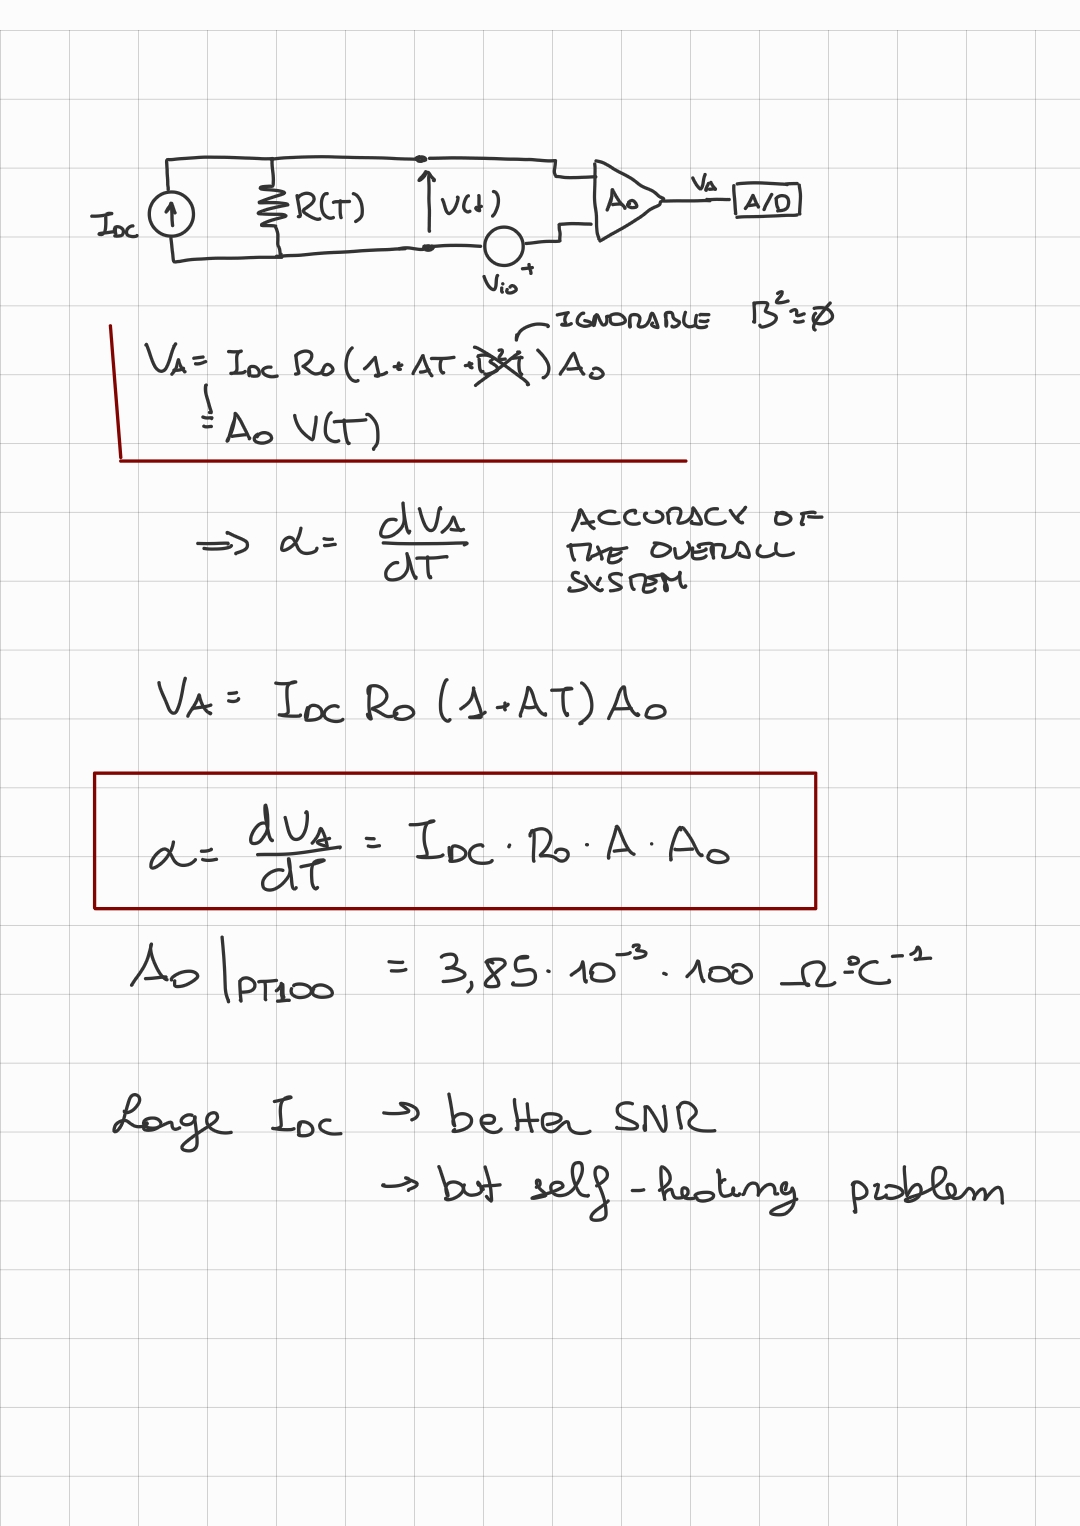 I_DC R(T) V(t) A₀ V_A A/D
V_io +
IGNORABLE B² = ∅
V_A = I_DC R₀ (1 + AT + B²T) A₀
= A₀ V(T)
⇒ α = dV_A/dT ACCURACY OF
THE OVERALL
SYSTEM
V_A = I_DC R₀ (1 + AT) A₀
α = dV_A/dT = I_DC · R₀ · A · A₀
A₀ |_PT100 = 3,85 · 10⁻³ · 100 Ω °C⁻¹
Large I_DC → better SNR
→ but self-heating problem